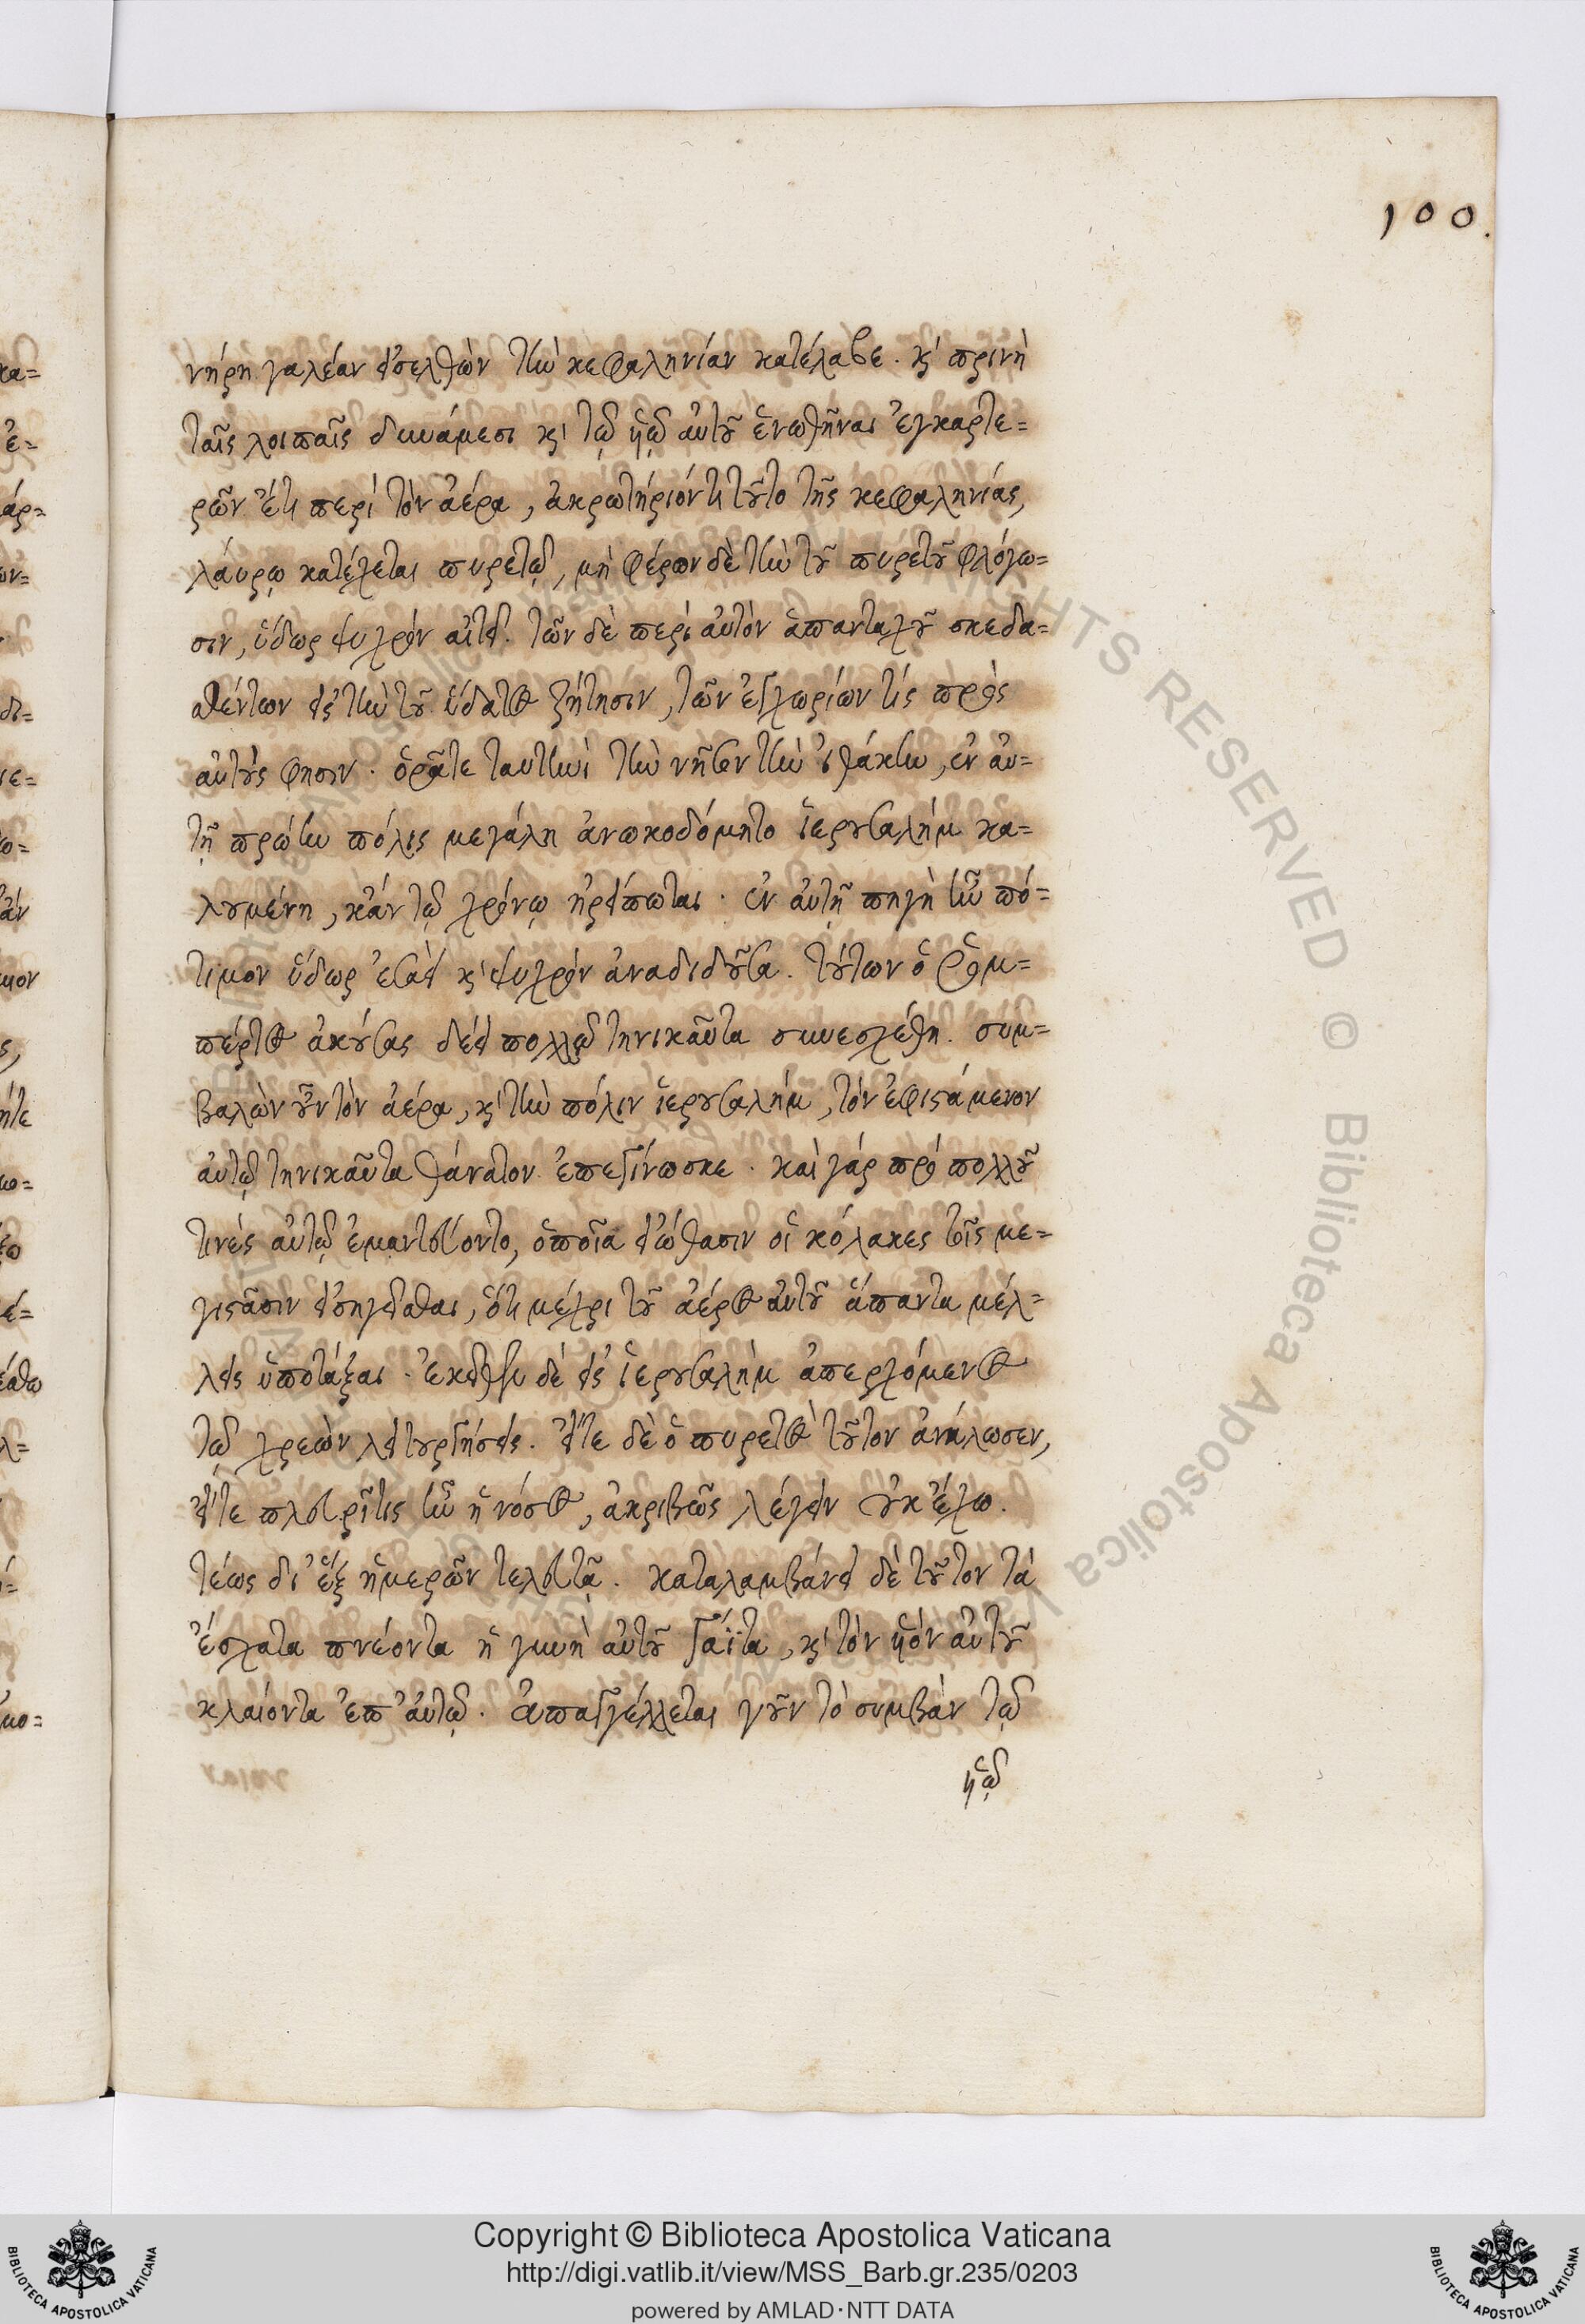 100.
νήρη γαλέαν εἰσελθὼν τὴν κεφαληνίαν κατέλαβε. καὶ πρινὴ
ταῖς λοιπαῖς δυνάμεσι καὶ τῷ ὑιῷ αὐτοῦ ἑνωθῆναι ἐγκαρτε=
ρῶν ἔτι περὶ τὸν ἀέρα, ἀκρωτήριόν τι τοῦτο τῆς κεφαληνίας,
λάυρῳ κατέχεται πυρετῷ, μὴ φέρων δὲ τὴν τοῦ πυρετοῦ φλόγω=
σιν, ὕδωρ ψυχρὸν αἰτεῖ. τῶν δὲ περὶ αὐτὸν ἁπανταχοῦ σκεδα=
σθέντων εἰς τὴν τοῦ ὕδατος ζήτησιν, τῶν ἐγχωρίων τίς πρὸς
αὐτούς φησιν. ὁρᾶτε ταυτηνὶ τὴν νῆσον τὴν ἰθάκην, ἐν αὐ=
τῇ πρώην πόλις μεγάλη ἀνωκοδόμητο ἱερουσαλήμ κα=
λουμένη, κἂν τῷ χρόνῳ ἠρείπωται. ἐν αὐτῇ πηγὴ ἦν πό=
τιμον ὕδωρ ἐσαεὶ καὶ ψυχρὸν ἀναδιδοῦσα. τούτων ὁ ῥομ=
πέρτος ἀκούσας δέει πολλῷ τηνικαῦτα συνεσχέθη. συμ=
βαλὼν οὖν τὸν ἀέρα, καὶ τὴν πόλιν ἱερουσαλήμ, τὸν ἐφιστάμενον
αὐτῷ τηνικαῦτα θάνατον ἐπεγίνωσκε. καὶ γὰρ πρὸ πολλοῦ
τινὲς αὐτῷ ἐμαντεύοντο, ὁποῖα εἰώθασιν οἱ κόλακες τοῖς με=
γιστᾶσιν εἰσηγεῖσθαι, ὅτι μέχρι τοῦ ἀέρος αὐτοῦ ἅπαντα μέλ=
λεις ὑποτάξαι. ἐκεῖθεν δὲ εἰς ἱερουσαλὴμ ἀπερχόμενος
τῷ χρεὼν λειτουργήσεις. εἴτε δὲ ὁ πυρετὸς τοῦτον ἀνάλωσεν,
εἴτε πλευρῖτις ἦν ἡ νόσος, ἀκριβῶς λέγειν οὐκ ἔχω.
τέως δι' ἓξ ἡμερῶν τελευτᾷ. καταλαμβάνει δὲ τοῦτον τὰ
ἔσχατα πνέοντα ἡ γυνὴ αὐτοῦ γαΐτα, καὶ τὸν ὑιὸν αὐτοῦ
κλαίοντα ἐπ' αὐτῷ. ἀπαγγέλλεται γοῦν τὸ συμβὰν τῷ
ὑιῷ
Copyright © Biblioteca Apostolica Vaticana
http://digi.vatlib.it/view/MSS_Barb.gr.235/0203
powered by AMLAD·NTT DATA